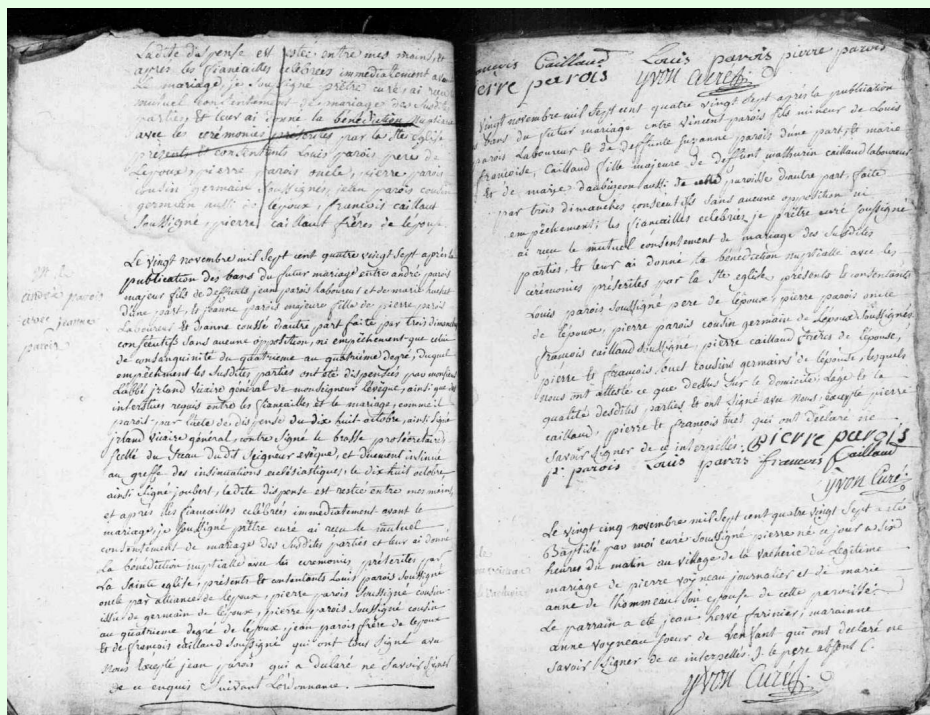 Ladite dispense est restée entre mes mains, et
après les fiancailles célébrées immediatement avant
le mariage, je soussigné prêtre curé ai reçu
mutuel consentement de mariage des susdites
parties et leur ai donné la bénédiction nuptiale
avec les cérémonies prescrites par la Ste Eglise
présents et consentants Louis parois pere de
Lepoux, pierre parois oncle, pierre parois
cousin germain soussignés, jean parois cousin
germain aussi de lepoux, francois caillaut
soussigné, pierre caillaut frères de lépouse.
andré parois
avec jeanne
parois
Le vingt novembre mil sept cent quatre vingt sept après la
publication des bans du futur mariage entre andré parois
majeur fils de deffunts jean parois laboureur et de marie
d'une part, et jeanne parois majeure fille de pierre parois
Laboureur et d'anne cousse d'autre part faite par trois dimanches
consécutifs sans aucune opposition, ni empêchement que celui
de consanguinité du quatrieme au quatrieme degré, duquel
empêchement les susdites parties ont été dispensées par monsieur
L'abbé irland vicaire général de monseigneur l'évêque, ainsi que des
interstices requis entre les fiancailles et le mariage, comme il
parois par l'acte de dispense du dix huit octobre, ainsi signé
irland vicaire général, contre signé le brasse prosécretaire
scellé du sceau dudit seigneur evêque, et duement insinué
au greffe des insinuations ecclésiastiques, le dix huit octobre
ainsi signé joubert, ladite dispense est restée entre mes mains
et après les fiancailles célébrées immediatement avant le
mariage, je soussigné prêtre curé ai reçu le mutuel
consentement de mariage des susdites parties et leur ai donné
la bénédiction nuptiale avec les ceremonies prescrites par
La sainte eglise, présents et consentants Louis parois soussigné
oncle par alliance de lepoux, pierre parois soussigné cousin
issu de germain de lepoux, pierre parois soussigné cousin
au quatrieme degré de lepoux jean parois frère de lepoux
et de francois caillaud soussigné qui ont tous signé avec
nous excepté jean parois qui a declaré ne savoir signer
de ce enquis suivant l'ordonnance.
francois Caillaud Louis parois pierre parois
pierre parois yvon curé
vingt novembre mil sept cent quatre vingt sept après la publication
des bans du futur mariage entre vincent parois fils mineur de Louis
parois Laboureur et de deffunte suzanne parois d'une part, et marie
francoise Caillaud fille majeure de deffunt mathurin caillaud laboureur
et de marie daubigeon aussi de cette paroisse d'autre part, faite
par trois dimanches consecutifs sans aucune opposition ni
empêchement; les fiancailles célébrées, je prêtre curé soussigné
ai reçu le mutuel consentement de mariage des susdites
parties, et leur ai donné la bénédiction nuptiale avec les
cérémonies prescrites par la Ste eglise, présents et consentants
Louis parois soussigné pere de lépoux, pierre parois oncle
de lépoux, pierre parois cousin germain de lepoux soussignés,
françois caillaud soussigné, pierre caillaud freres de lépouse,
pierre et françois cousins germains de lépouse, lesquels
nous ont attesté ce que dessus sur le domicile, l'age et la
qualité desdites parties, et ont signé avec nous, excepté pierre
caillaud, pierre et françois qui ont declaré ne
savoir signer de ce interpellés. pierre parois
p. parois Louis parois francois Caillaud
yvon Curé
Le vingt cinq novembre mil sept cent quatre vingt sept a été
Baptisé par moi curé soussigné pierre né ce jour a six
heures du matin au village de la vacherie du légitime
mariage de pierre voyneau journalier et de marie
anne de lhommeau son epouse de cette paroisse.
Le parrain a été jean hervé farinier, marainne
anne voyneau soeur de l'enfant qui ont déclaré ne
savoir signer de ce interpellés. le pere absent.
yvon Curé